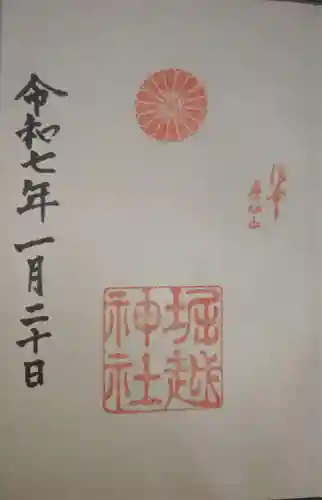 堀越
神社
令和七年一月二十日